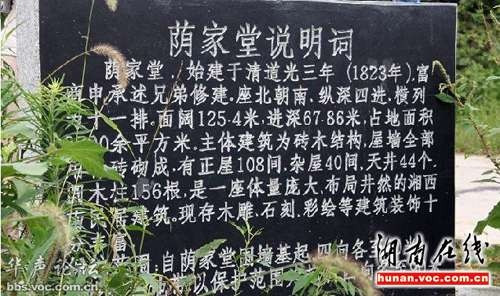 荫家堂说明词
荫家堂,始建于清道光三年(1823年),富
申承述兄弟修建.座北朝南,纵深四进,横列
十一排,面阔125.4米,进深67.86米,占地面积
余平方米.主体建筑为砖木结构,屋墙全部
砖砌成,有正屋108间,杂屋40间,天井44个.
木柱156根,是一座体量庞大,布局井然的湘西
建筑。现存木雕,石刻,彩绘等建筑装饰十
富
围:自荫家堂围墙基起,四向各
以保护范围
华声论坛
bbs.voc.com.cn
湖南在线
hunan.voc.com.cn